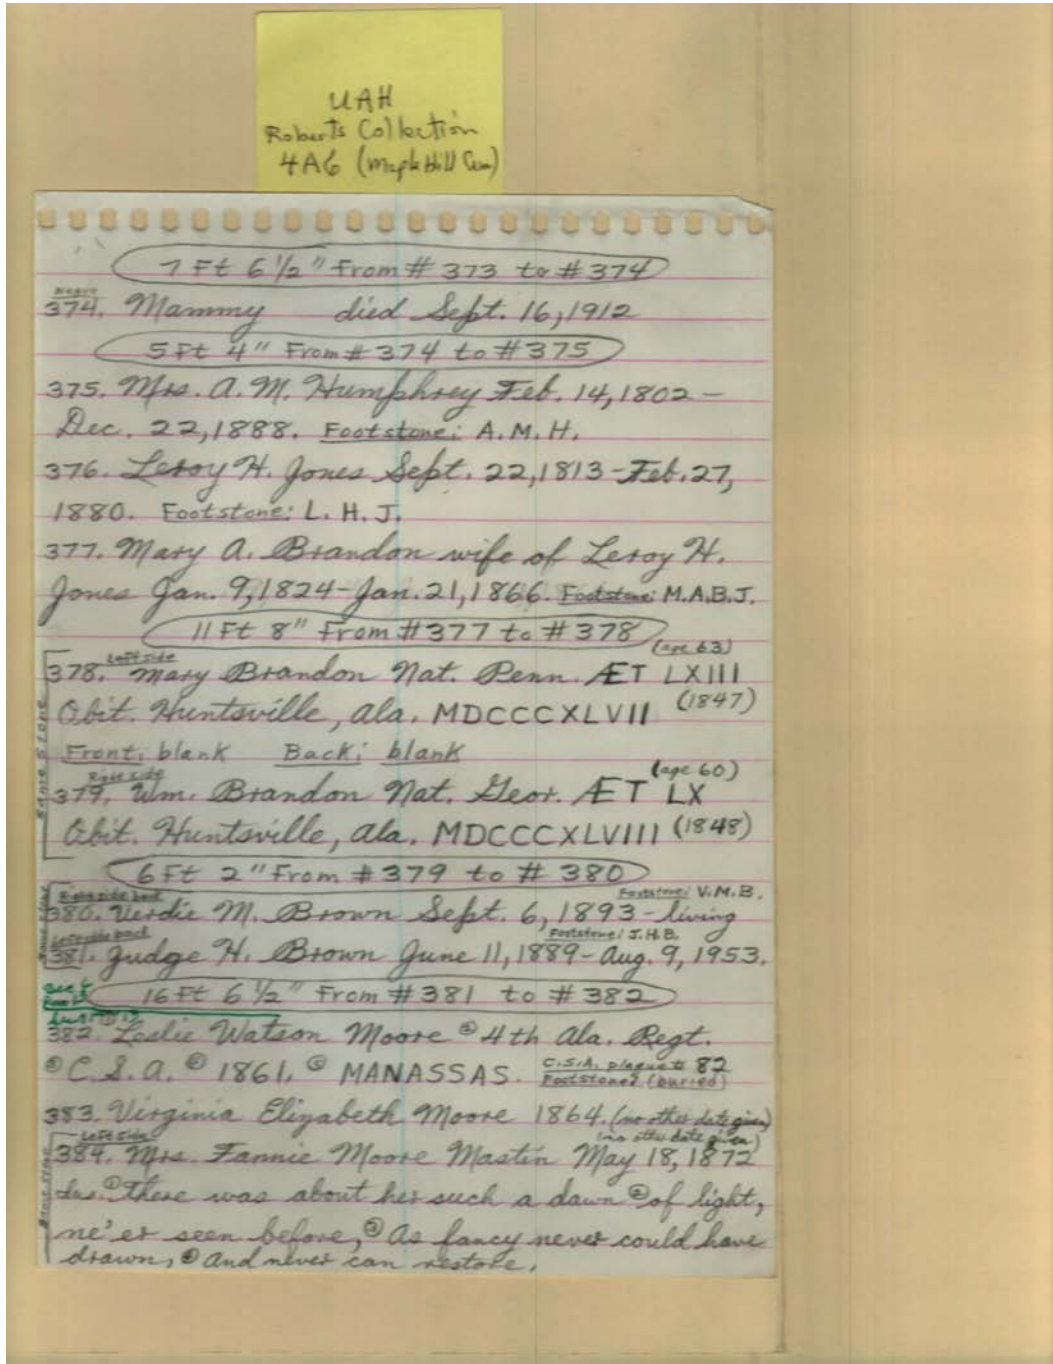 UAH
Roberts Collection
4A6 (Maple Hill Cem)
7 Ft 6 1/2" From # 373 to # 374
Negro
374. Mammy died Sept. 16, 1912
5 Ft 4" From # 374 to # 375
375. Mrs. A. M. Humphrey Feb. 14, 1802 –
Dec. 22, 1888. Footstone: A.M.H.
376. Leroy H. Jones Sept. 22, 1813 – Feb. 27,
1880. Footstone: L. H. J.
377. Mary A. Brandon wife of Leroy H.
Jones Jan. 9, 1824 – Jan. 21, 1866. Footstone: M.A.B.J.
11 Ft 8" From # 377 to # 378
Left side (age 63)
378. Mary Brandon Nat. Penn. ÆT LXIII
Obit. Huntsville, Ala. MDCCCXLVII (1847)
Same stone
Front: blank Back: blank
Right side (age 60)
379. Wm. Brandon Nat. Geor. ÆT LX
Obit. Huntsville, Ala. MDCCCXLVIII (1848)
6 Ft 2" From # 379 to # 380
Right side back Footstone: V.M.B.
380. Verdie M. Brown Sept. 6, 1893 – living
Left side back Footstone: J.H.B.
381. Judge H. Brown June 11, 1889 – Aug. 9, 1953.
16 Ft 6 1/2" From # 381 to # 382
382. Leslie Watson Moore ② 4th Ala. Regt.
③ C.S.A. ④ 1861. ⑤ MANASSAS. C.S.A. plaque # 82
Footstone? (buried)
383. Virginia Elizabeth Moore 1864. (no other date given)
Left side (no other date given)
384. Mrs. Fannie Moore Mastin May 18, 1872
Same stone
Ins. ① There was about her such a dawn ② of light,
ne'er seen before, ③ As fancy never could have
drawn, ④ And never can restore.